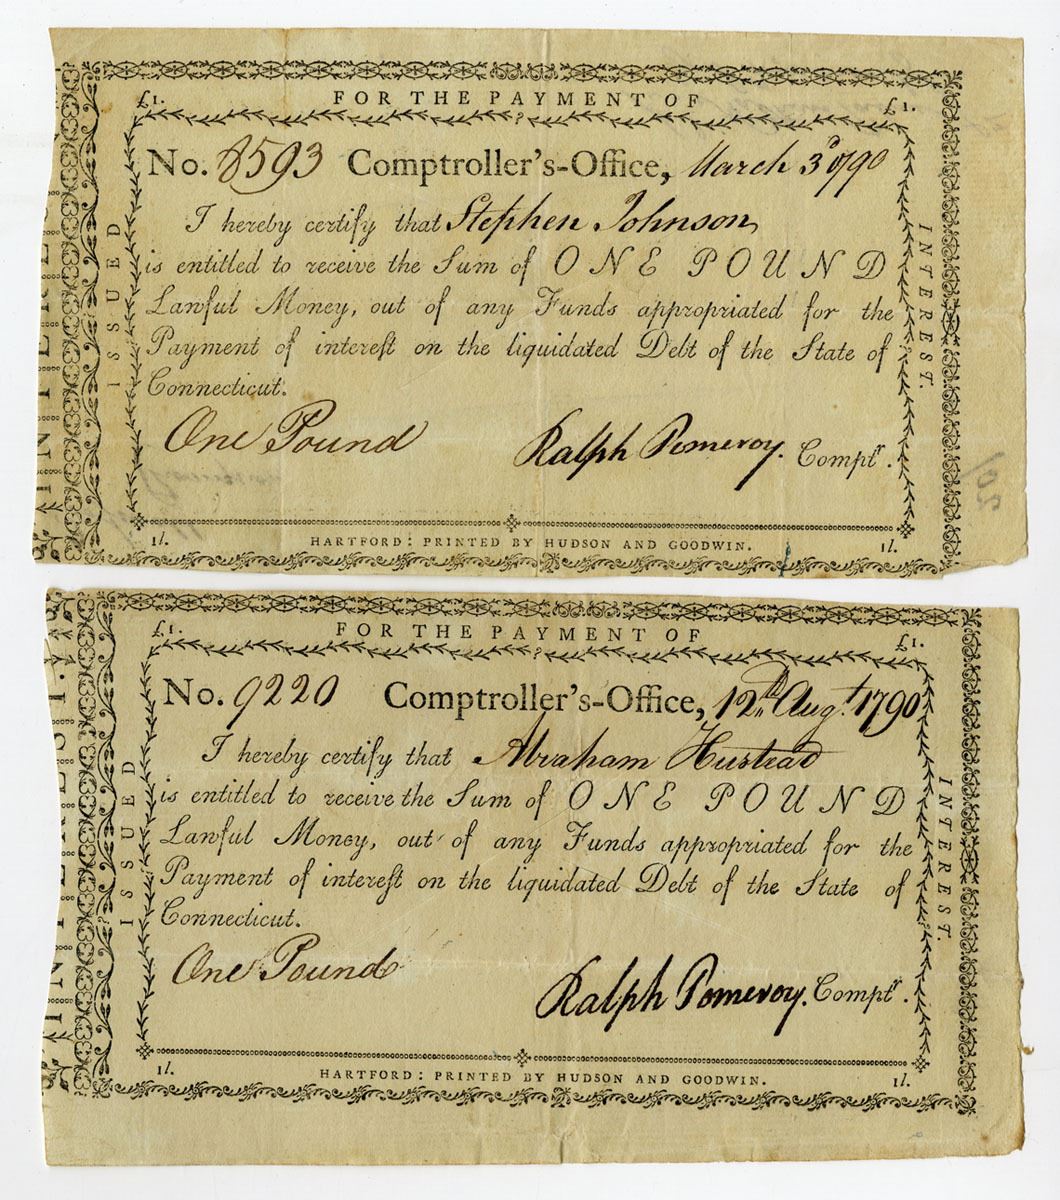 £1. FOR THE PAYMENT OF £1.
No. 8593 Comptroller's-Office, March 3d 1790
I hereby certify that Stephen Johnson
is entitled to receive the Sum of ONE POUND
Lawful Money, out of any Funds appropriated for the
Payment of intereſt on the liquidated Debt of the State of
Connecticut.
One Pound
Ralph Pomeroy. Comptr.
1l. HARTFORD: PRINTED BY HUDSON AND GOODWIN. 1l.
ISSUED
INTEREST.
£1. FOR THE PAYMENT OF £1.
No. 9220 Comptroller's-Office, 12th Augt. 1790
I hereby certify that Abraham Hustead
is entitled to receive the Sum of ONE POUND
Lawful Money, out of any Funds appropriated for the
Payment of intereſt on the liquidated Debt of the State of
Connecticut.
One Pound
Ralph Pomeroy. Comptr.
1l. HARTFORD: PRINTED BY HUDSON AND GOODWIN. 1l.
ISSUED
INTEREST.